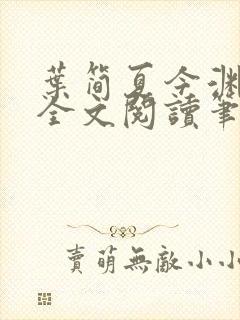 葉簡夏令淵
全文閱讀筆
賣萌無敵小小